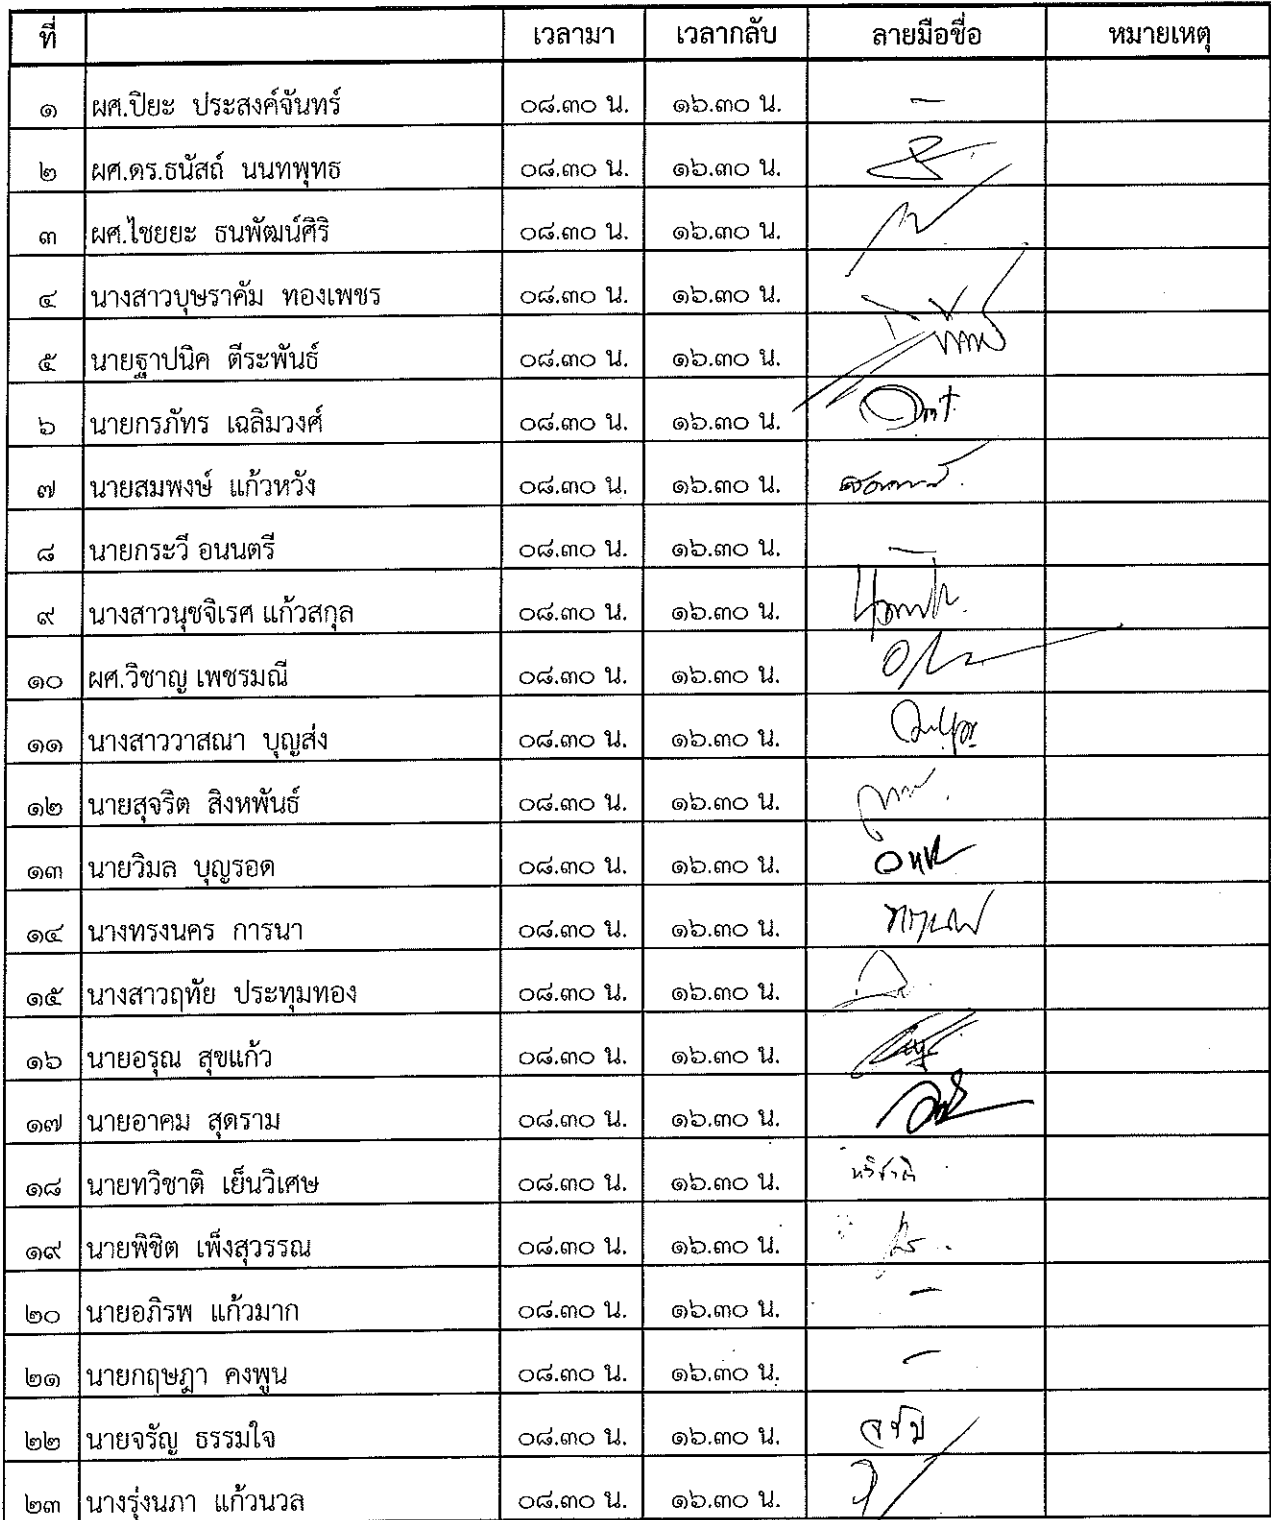 ที่ เวลามา เวลากลับ ลายมือชื่อ หมายเหตุ
๑ ผศ.ปิยะ ประสงค์จันทร์ ๐๘.๓๐ น. ๑๖.๓๐ น. –
๒ ผศ.ดร.ธนัสถ์ นนทพุทธ ๐๘.๓๐ น. ๑๖.๓๐ น.
๓ ผศ.ไชยยะ ธนพัฒน์ศิริ ๐๘.๓๐ น. ๑๖.๓๐ น.
๔ นางสาวบุษราคัม ทองเพชร ๐๘.๓๐ น. ๑๖.๓๐ น.
๕ นายฐาปนิค ตีระพันธ์ ๐๘.๓๐ น. ๑๖.๓๐ น.
๖ นายกรภัทร เฉลิมวงศ์ ๐๘.๓๐ น. ๑๖.๓๐ น.
๗ นายสมพงษ์ แก้วหวัง ๐๘.๓๐ น. ๑๖.๓๐ น.
๘ นายกระวี อนนตรี ๐๘.๓๐ น. ๑๖.๓๐ น. –
๙ นางสาวนุชจิเรศ แก้วสกุล ๐๘.๓๐ น. ๑๖.๓๐ น.
๑๐ ผศ.วิชาญ เพชรมณี ๐๘.๓๐ น. ๑๖.๓๐ น.
๑๑ นางสาววาสณา บุญส่ง ๐๘.๓๐ น. ๑๖.๓๐ น.
๑๒ นายสุจริต สิงหพันธ์ ๐๘.๓๐ น. ๑๖.๓๐ น.
๑๓ นายวิมล บุญรอด ๐๘.๓๐ น. ๑๖.๓๐ น.
๑๔ นางทรงนคร การนา ๐๘.๓๐ น. ๑๖.๓๐ น.
๑๕ นางสาวฤทัย ประทุมทอง ๐๘.๓๐ น. ๑๖.๓๐ น.
๑๖ นายอรุณ สุขแก้ว ๐๘.๓๐ น. ๑๖.๓๐ น.
๑๗ นายอาคม สุดราม ๐๘.๓๐ น. ๑๖.๓๐ น.
๑๘ นายทวิชาติ เย็นวิเศษ ๐๘.๓๐ น. ๑๖.๓๐ น. ทวิชาติ
๑๙ นายพิชิต เพ็งสุวรรณ ๐๘.๓๐ น. ๑๖.๓๐ น.
๒๐ นายอภิรพ แก้วมาก ๐๘.๓๐ น. ๑๖.๓๐ น. –
๒๑ นายกฤษฎา คงพูน ๐๘.๓๐ น. ๑๖.๓๐ น. –
๒๒ นายจรัญ ธรรมใจ ๐๘.๓๐ น. ๑๖.๓๐ น.
๒๓ นางรุ่งนภา แก้วนวล ๐๘.๓๐ น. ๑๖.๓๐ น.